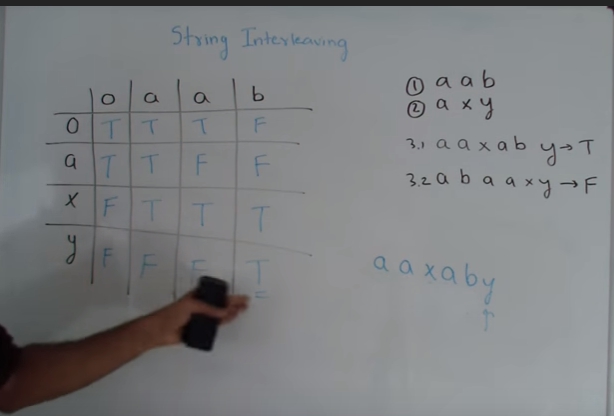 String Interleaving
0 a a b
0 T T T F
a T T F F
x F T T T
y F F F T
① a a b
② a x y
3.1 a a x a b y → T
3.2 a b a a x y → F
a a x a b y